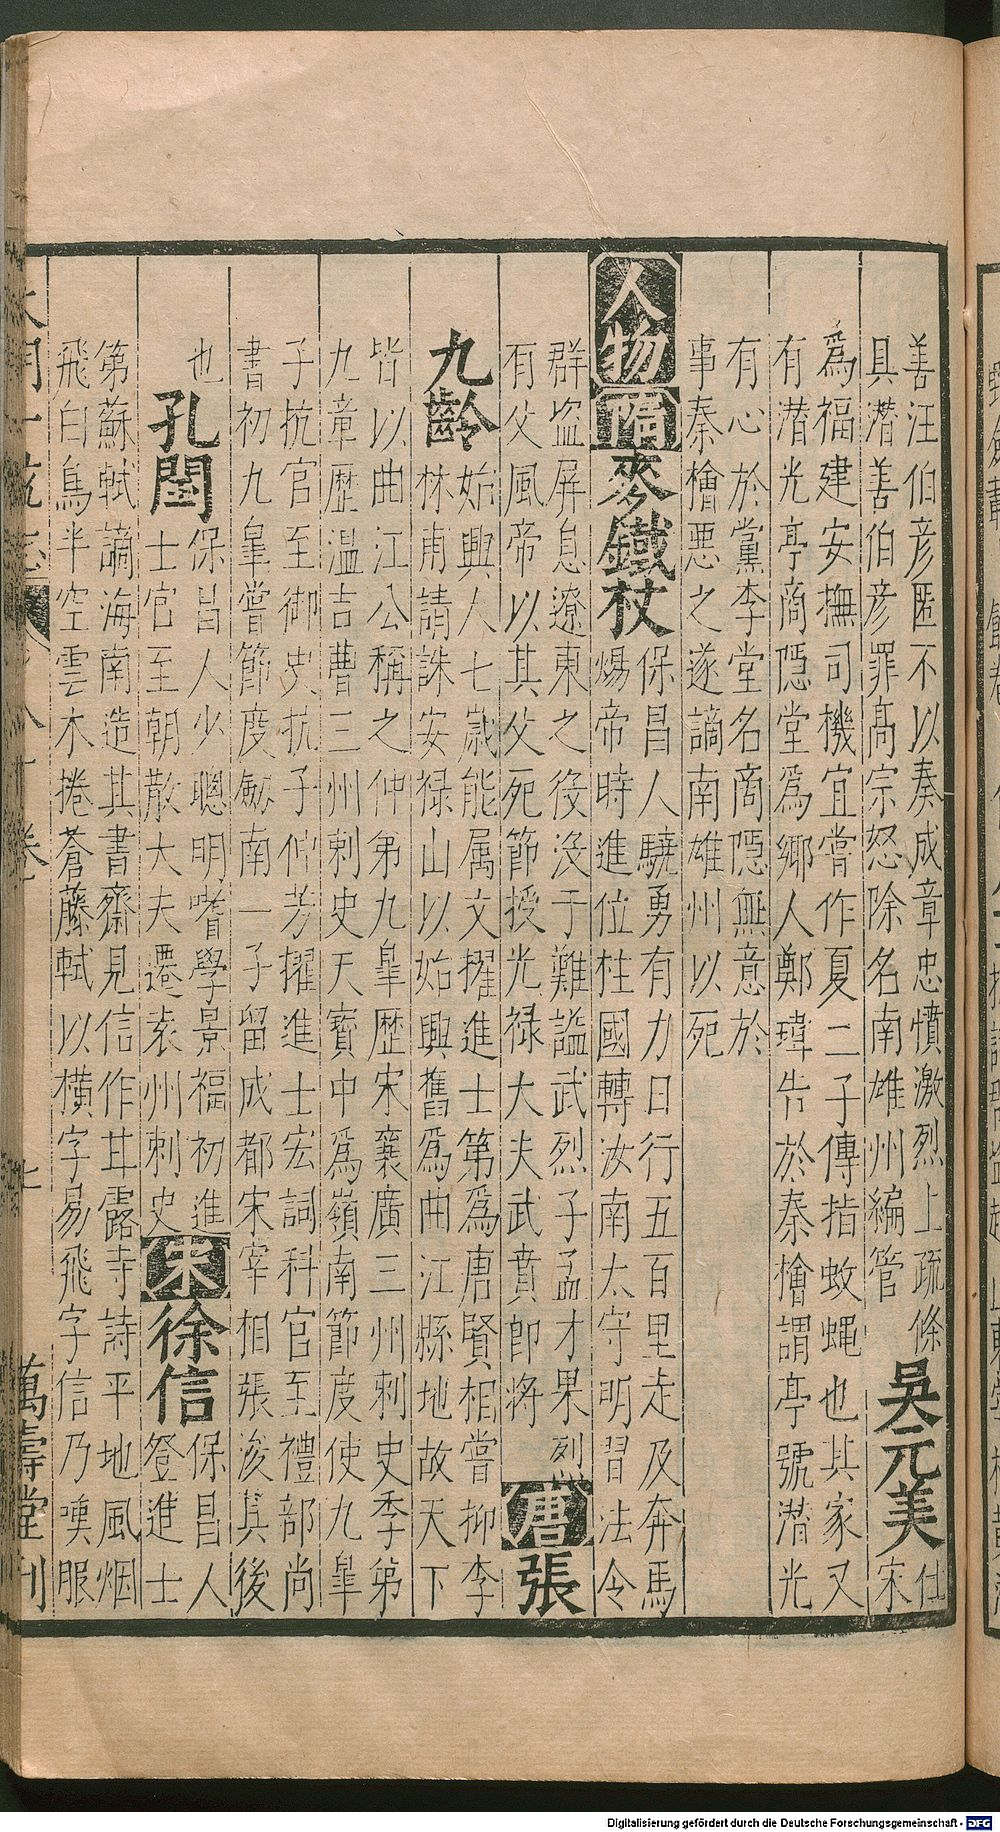 善汪伯彦匿不以奏成章忠憤激烈上疏條
具潛善伯彦罪髙宗怒除名南雄州編管
吳元美
仕宋
爲福建安撫司機宜嘗作夏二子傳指蚊蠅也其家又
有潜光亭商隠堂爲鄉人鄭瑋告於秦檜謂亭號潜光
有心於黨李堂名商隠無意於
事秦檜惡之遂謫南雄州以死
人物
隋
麥鐵杖
保昌人驍勇有力日行五百里走及奔馬
煬帝時進位柱國轉汝南太守明習法令
群盗屏息遼東之役没于難謚武烈子孟才果烈
有父風帝以其父死節授光禄大夫武賁郎将
唐
張
九齡
始興人七歳能属文擢進士第爲唐賢相嘗抑李
林甫請誅安禄山以始興舊爲曲江縣地故天下
皆以曲江公稱之仲弟九臯歴宋襄廣三州刺史季弟
九章歴温吉曹三州刺史天寳中爲嶺南節度使九臯
子抗官至御史抗子仲芳擢進士宏詞科官至禮部尚
書初九臯嘗節度劒南一子留成都宋宰相張浚其後
也
孔閏
保昌人少聰明嗜學景福初進
士官至朝散大夫遷袁州刺史
宋
徐信
保昌人
登進士
第蘇軾謫海南造其書齋見信作甘露寺詩平地風烟
飛白鳥半空雲木捲蒼藤軾以横字易飛字信乃嘆服
萬壽堂刊
Digitalisierung gefördert durch die Deutsche Forschungsgemeinschaft - DFG